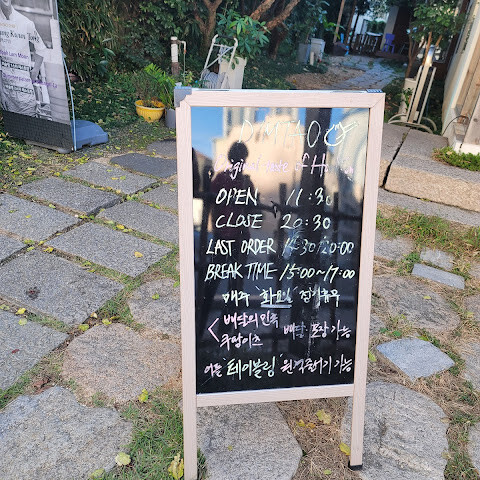 OPEN 11:30
CLOSE 20:30
LAST ORDER 14:30/20:00
BREAK TIME 15:00~17:00
매주 '화요일' 정기휴무
< 배달의민족
쿠팡이츠 배달·포장 가능
어플 '테이블링' 원격줄서기 가능